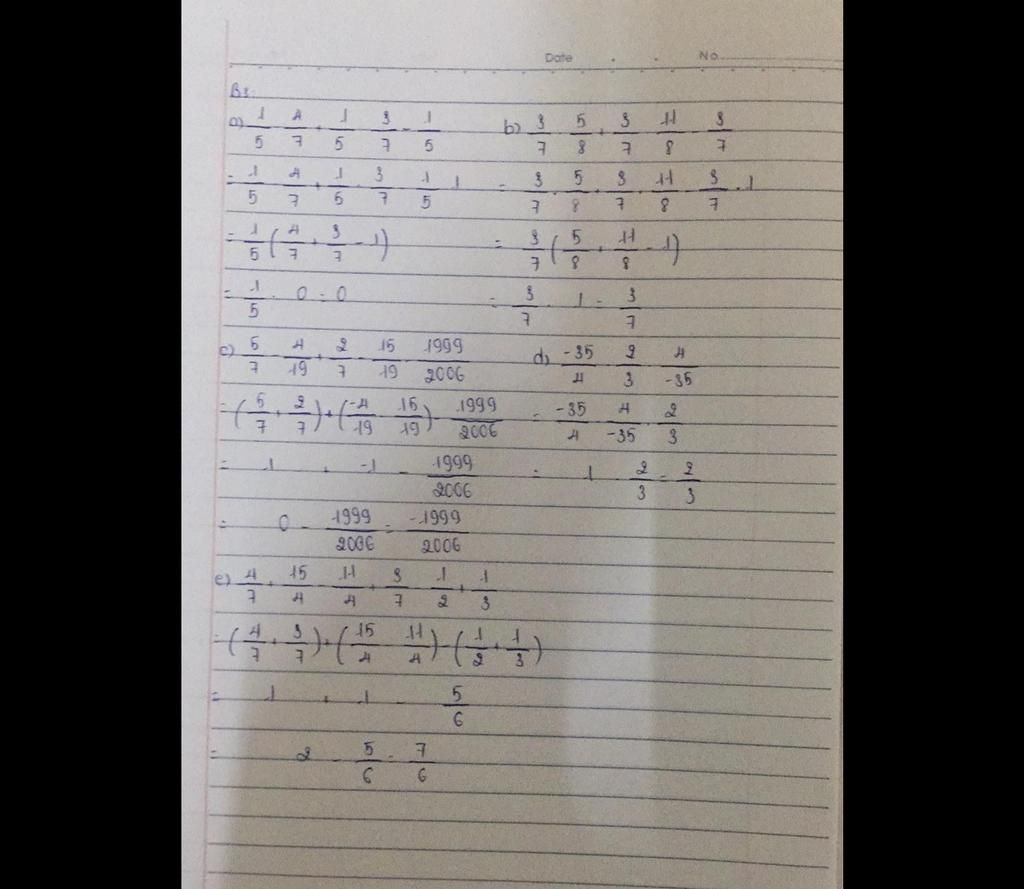 Date . . No.
B3:
a) 1/5 . 4/7 + 1/5 . 3/7 - 1/5
= 1/5 . 4/7 + 1/5 . 3/7 - 1/5 . 1
= 1/5 ( 4/7 + 3/7 - 1)
= 1/5 . 0 = 0
b) 3/7 . 5/8 + 3/7 . 11/8 - 3/7
= 3/7 . 5/8 + 3/7 . 11/8 - 3/7 . 1
= 3/7 ( 5/8 + 11/8 - 1)
= 3/7 . 1 = 3/7
c) 5/7 - 4/19 + 2/7 - 15/19 - 1999/2006
= ( 5/7 + 2/7 ) + ( -4/19 - 15/19 ) - 1999/2006
= 1 + -1 - 1999/2006
= 0 - 1999/2006 = -1999/2006
d) -35/4 . 2/3 . 4/-35
= -35/4 . 4/-35 . 2/3
= 1 . 2/3 = 2/3
e) 4/7 + 15/4 - 11/4 + 3/7 - 1/2 + 1/3
= ( 4/7 + 3/7 ) + ( 15/4 - 11/4 ) - ( 1/2 + 1/3 )
= 1 + 1 - 5/6
= 2 - 5/6 = 7/6